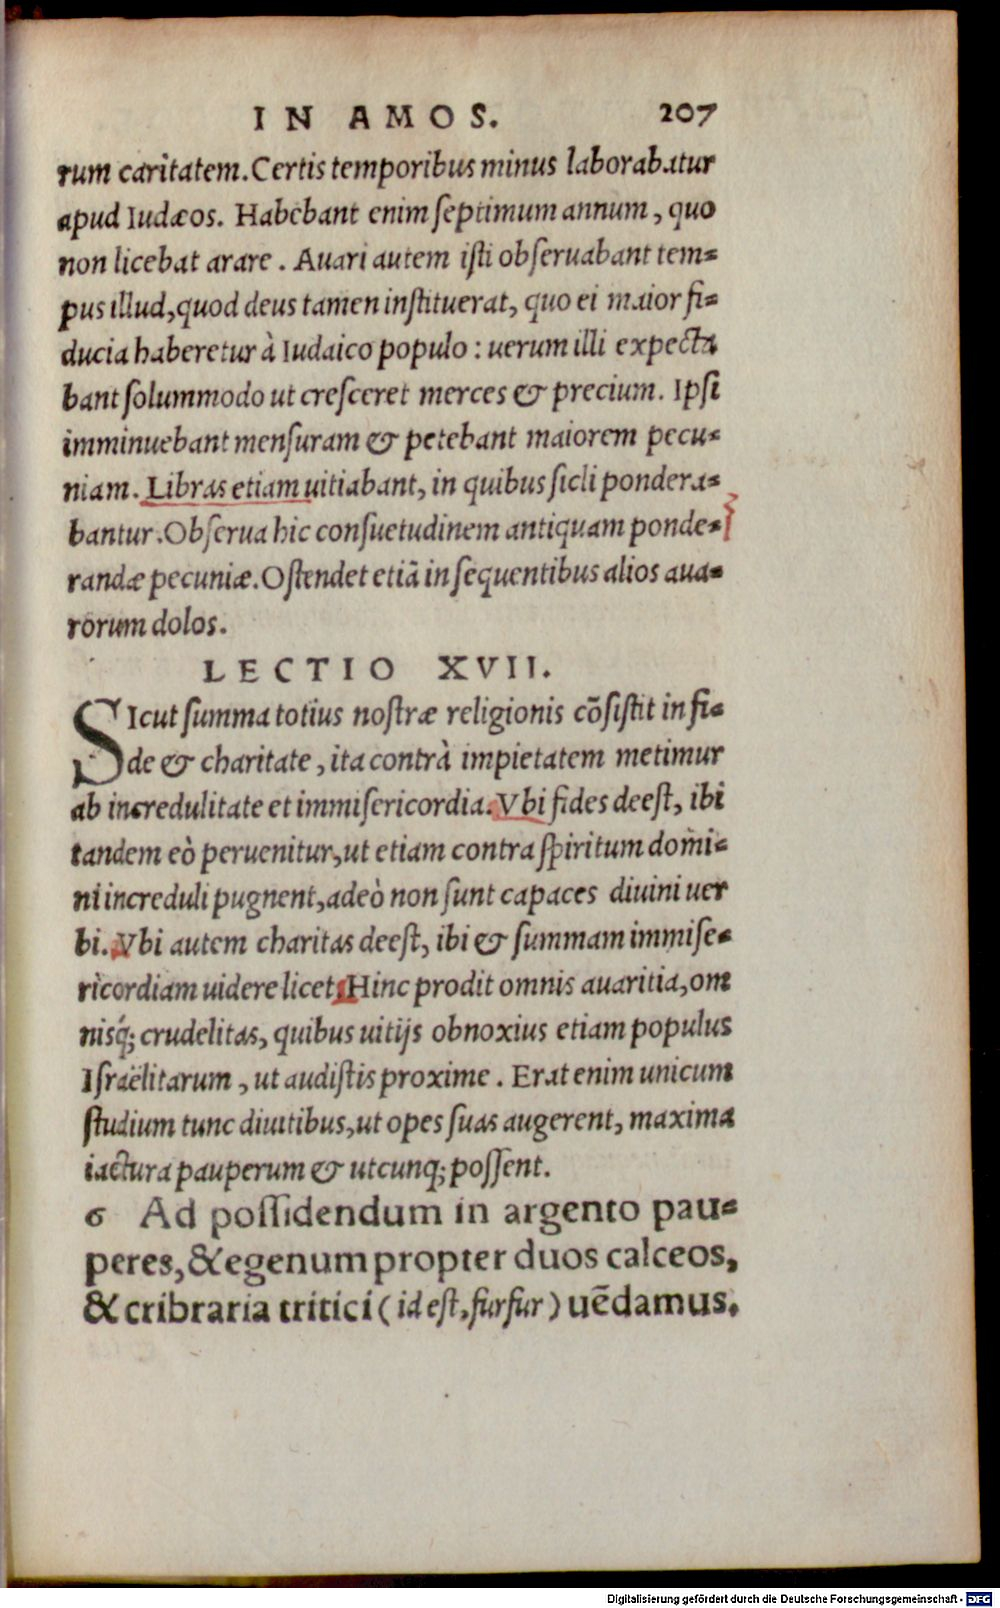 IN AMOS. 207
rum caritatem. Certis temporibus minus laborabatur
apud Iudæos. Habebant enim ſeptimum annum, quo
non licebat arare. Auari autem iſti obſeruabant tem⸗
pus illud, quod deus tamen inſtituerat, quo ei maior fi⸗
ducia haberetur à Iudaico populo: uerum illi expecta
bant ſolummodo ut creſceret merces & precium. Ipſi
imminuebant menſuram & petebant maiorem pecu⸗
niam. Libras etiam uitiabant, in quibus ſicli pondera⸗
bantur. Obſerua hic conſuetudinem antiquam ponde⸗
randæ pecuniæ. Oſtendet etiã in ſequentibus alios aua⸗
rorum dolos.
LECTIO XVII.
SIcut ſumma totius noſtræ religionis cõſiſtit in fi⸗
de & charitate, ita contrà impietatem metimur
ab incredulitate et immiſericordia. Vbi fides deeſt, ibi
tandem eò peruenitur, ut etiam contra ſpiritum domi⸗
ni increduli pugnent, adeò non ſunt capaces diuini uer
bi. Vbi autem charitas deeſt, ibi & ſummam immiſe⸗
ricordiam uidere licet. Hinc prodit omnis auaritia, om
nisq́; crudelitas, quibus uitijs obnoxius etiam populus
Iſraëlitarum, ut audiſtis proxime. Erat enim unicum
ſtudium tunc diuitibus, ut opes ſuas augerent, maxima
iactura pauperum & utcunq; poſſent.
6 Ad poſſidendum in argento pau⸗
peres, & egenum propter duos calceos,
& cribraria tritici (id eſt, furfur) uẽdamus.
Digitalisierung gefördert durch die Deutsche Forschungsgemeinschaft - DFG